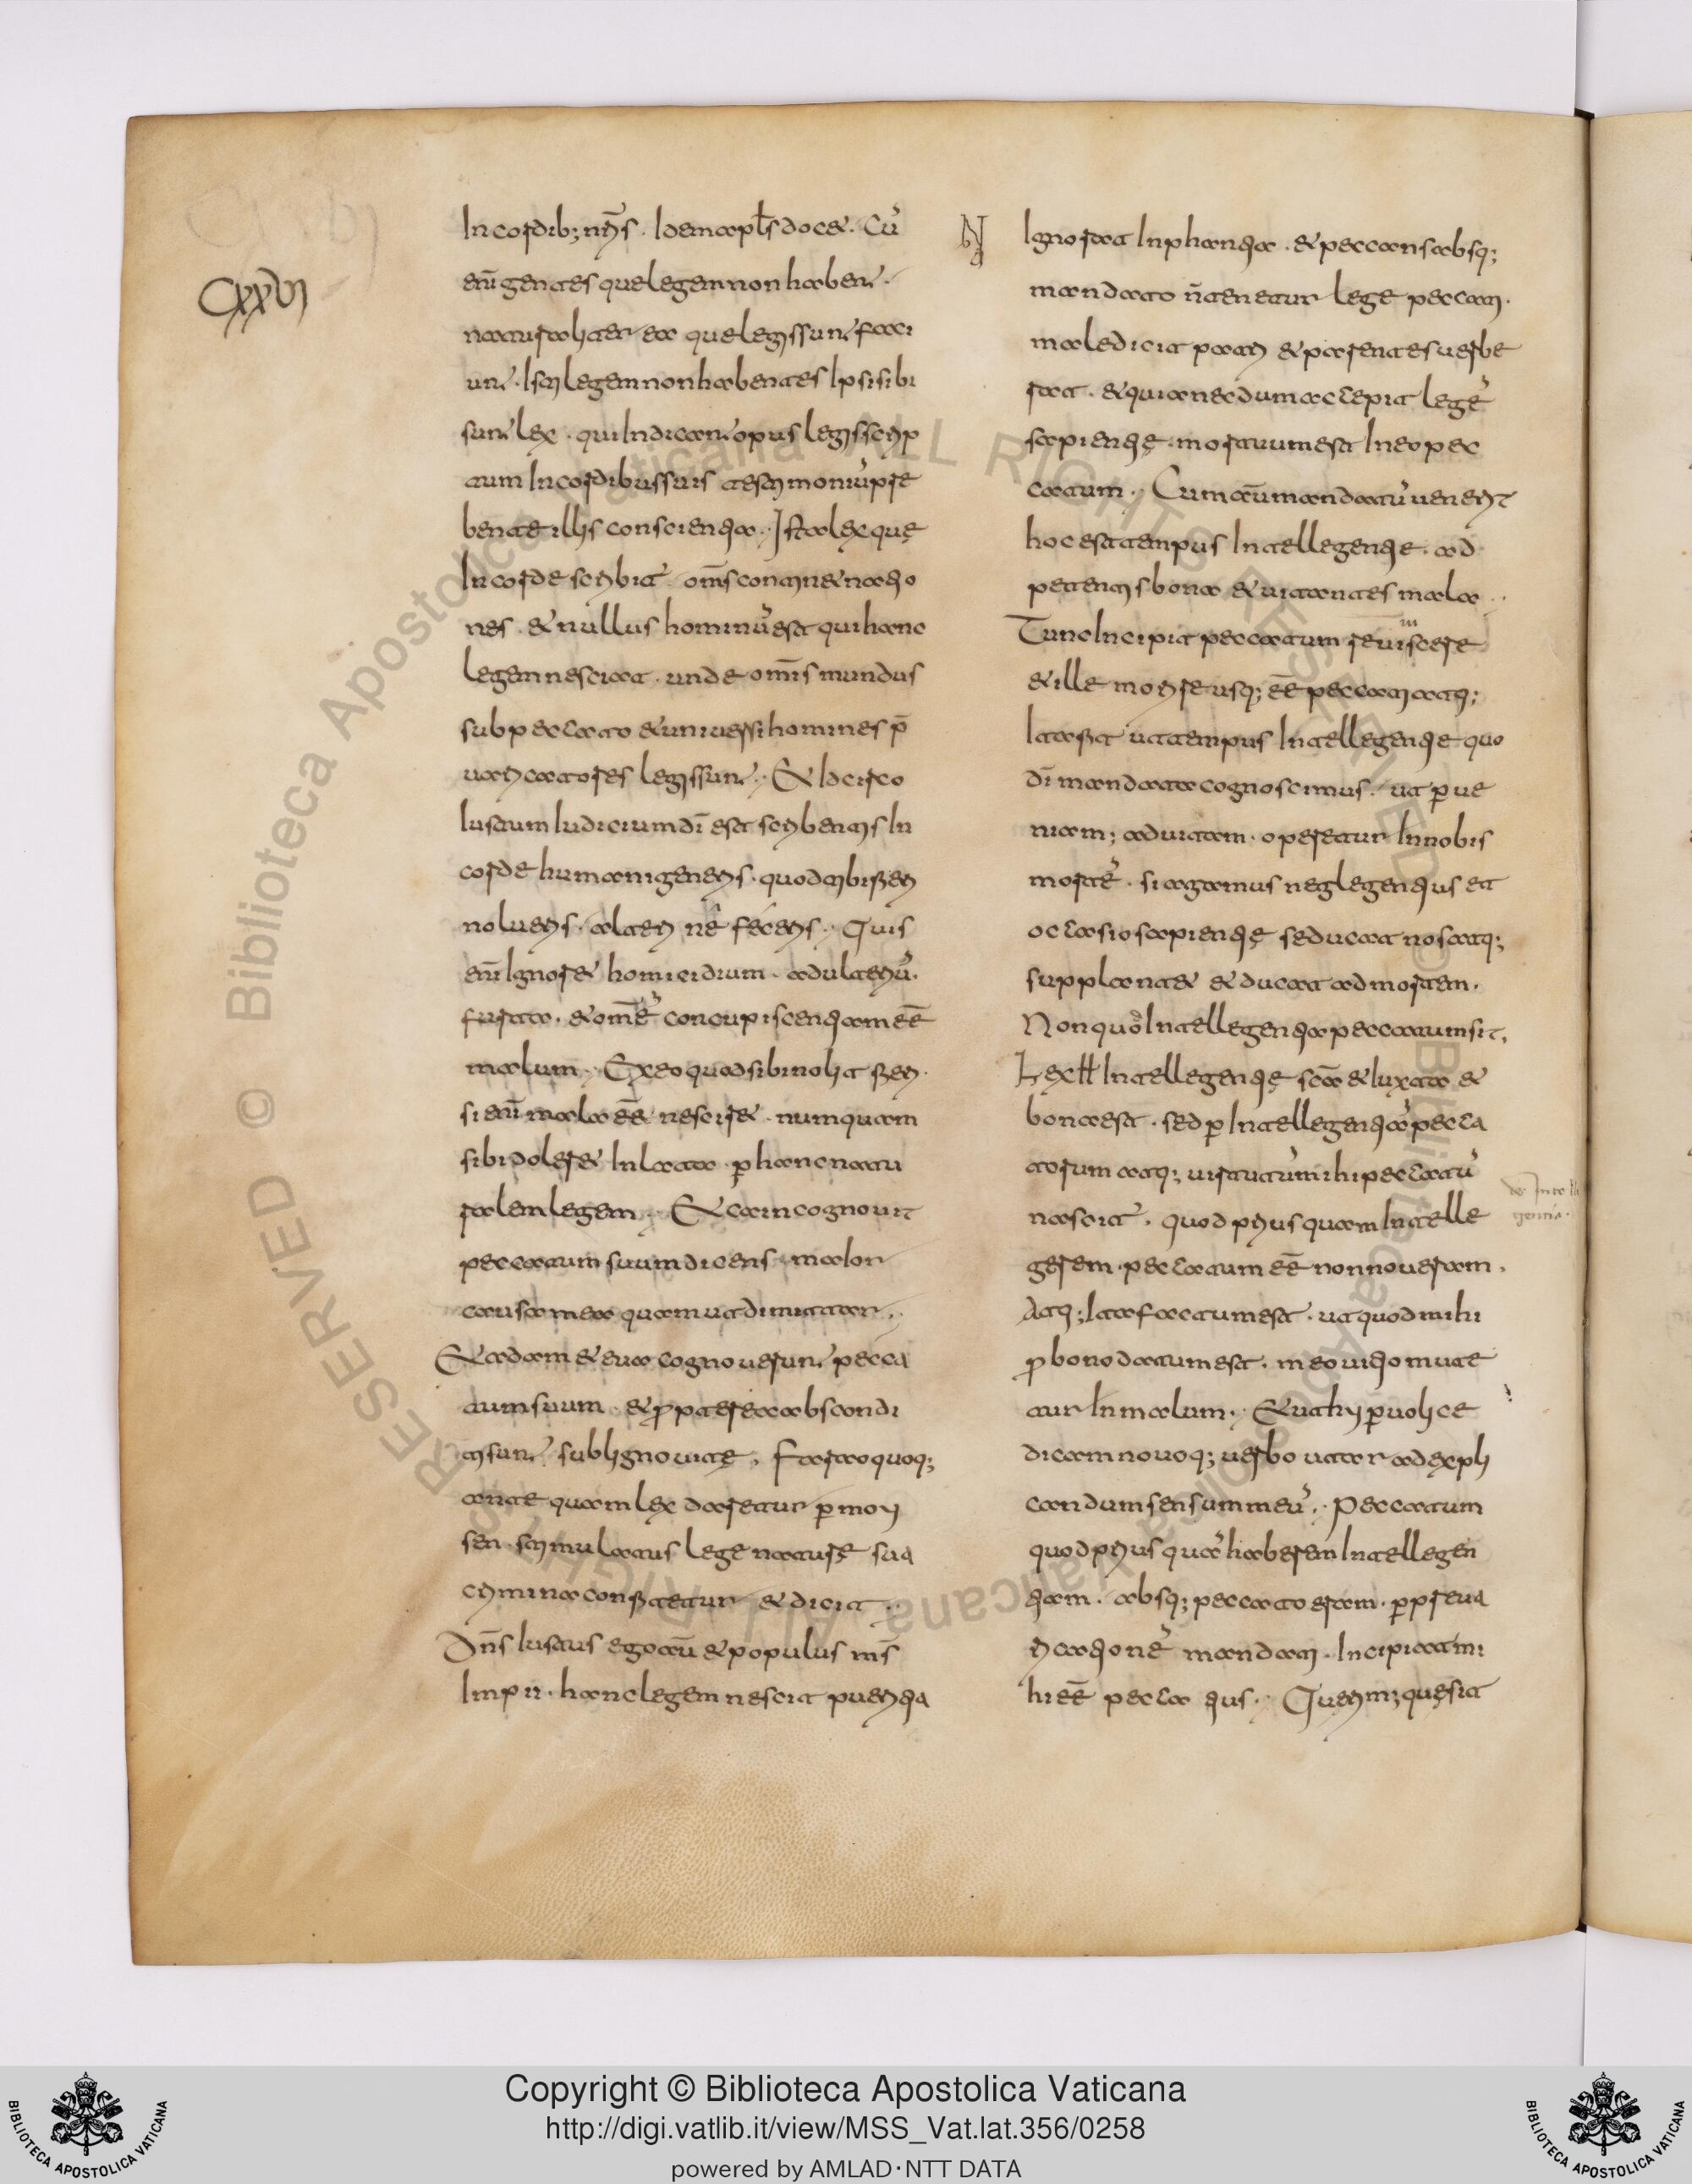 CXXVI
In cordib; nr̄is. Idem apl̄s docet. Cū
eni̅ gentes que legem non habent.
naturaliter ea que legis sunt faci
unt. Isti legem non habentes Ipsi sibi
sunt lex. qui Indicant opus legis scrip
tum In cordibus suis testimoniū pre
bente illis conscientia. Ista lex quę
In corde scribit om̄s continet natio
nes. et nullus hominū est qui hanc
legem nesciat. unde omi̅s mundus
sub peccato et uniuersi homines p̄
uaricatores legis sunt. Et Idcirco
Iustum Iudicium di̅ est scribentis In
corde humani generis. quod tibi fieri
nolueris. alteri ne feceris. Quis
eni̅ Ignoret homicidium. adulteriū.
furta. et om̄ē concupiscentiam ee̅
malum. Ex eo quod sibi nolit fieri.
si eni̅ mala ee̅ nesciret. numquam
sibi doleret Inlata. p hanc natu
ralem legem. Et cain cognouit
peccatum suum dicens. maior
causa mea quam ut dimittar.
Et adam et eua cognouerunt pecca
tum suum. et pptereá abscondi
ti sunt sub ligno uitę. Farao quoq;
ante quam lex daretur p moy
sen. stimulatus lege naturę sua
crimina confitetur et dicit.
Dn̄s Iustus ego aū et populus m̅s
Impii. hanc legem nescit pueritia
Ignorat Inphantia. et peccans absq;
mandato n̄ tenetur lege peccati.
maledicit patri et parentes uerbe
rat. et quia necdum accepit legē
sapientię. mortuum est In eo pec
catum. Cum aū mandatū uenerit
hoc est tempus Intellegentie. ad
petentis bona et uitantes mala.
Tunc Incipit peccatum reuiuiscere
et ille mori reusq; ee̅ peccati atq;
Ita fit ut tempus Intellegentie quo
di̅ mandata cognoscimus. ut p ue
niam; ad uitam. operetur In nobis
mortē. si agamus neglegentius et
occasio sapientię seducat nos atq;
supplantet et ducat ad mortem.
Non quo Intellegentia peccatum sit.
Lex Intellegentię sc̄a et Iuxta et
bona est. sed p Intellegentiā pecca
torum atq; uirtutū mihi peccatū
nascit. quod prius quam Intelle
de Intelli
gentia.
gerem. peccatum ee̅ non noueram.
Atq; Ita factum est. ut quod mihi
p bono datum est. meo uitio mute
tur In malum. Et ut hyperuolice
dicam nouoq; uerbo utar ad expli
candum sensum meū. Peccatum
quod prius quā haberem Intellegen
tiam. absq; peccato eram. p preua
ricationē mandati. Incipiat mi
hi ee̅ peccatius. Querim; quęsit